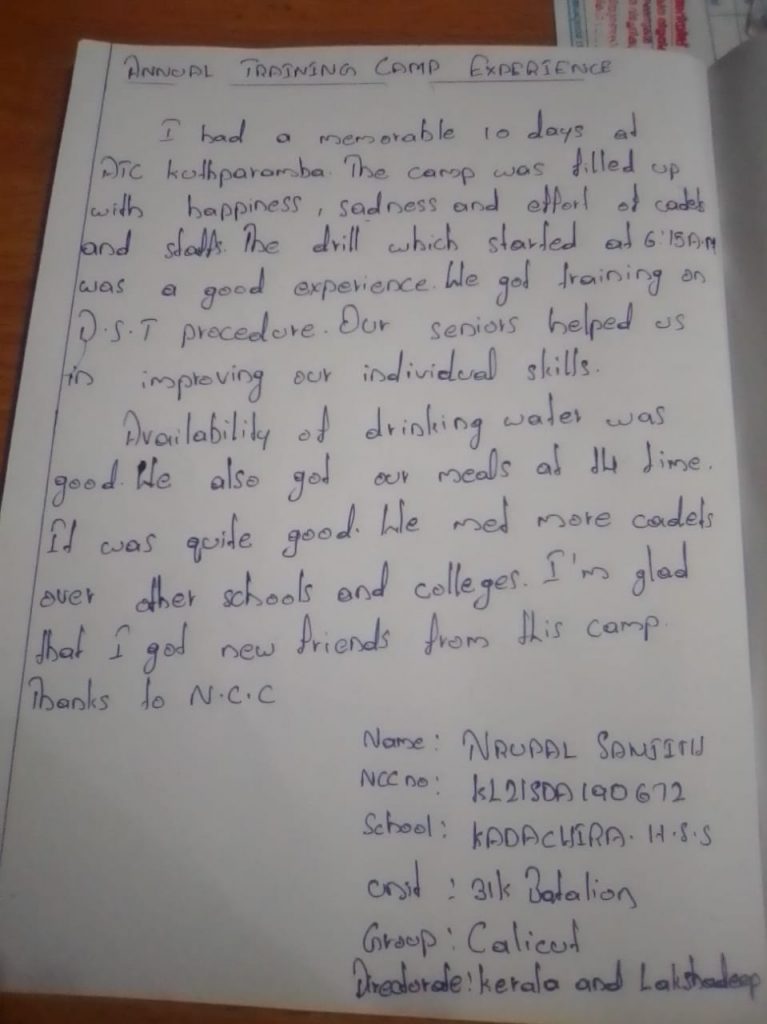 ANNUAL TRAINING CAMP EXPERIENCE
I had a memorable 10 days at
ATC kuthparamba. The camp was filled up
with happiness, sadness and effort of cadets
and staffs. The drill which started at 6:15A.M
was a good experience. We got training on
D.S.T procedure. Our seniors helped us
in improving our individual skills.
Availability of drinking water was
good. We also got our meals at time.
It was quite good. We met more cadets
over other schools and colleges. I'm glad
that I got new friends from this camp.
Thanks to N.C.C
Name: SANJITH
NCC no: KL21SDA190672
School: KADACHIRA. H.S.S
Unit: 31k Batalion
Group: Calicut
Directorate: kerala and Lakshadeep